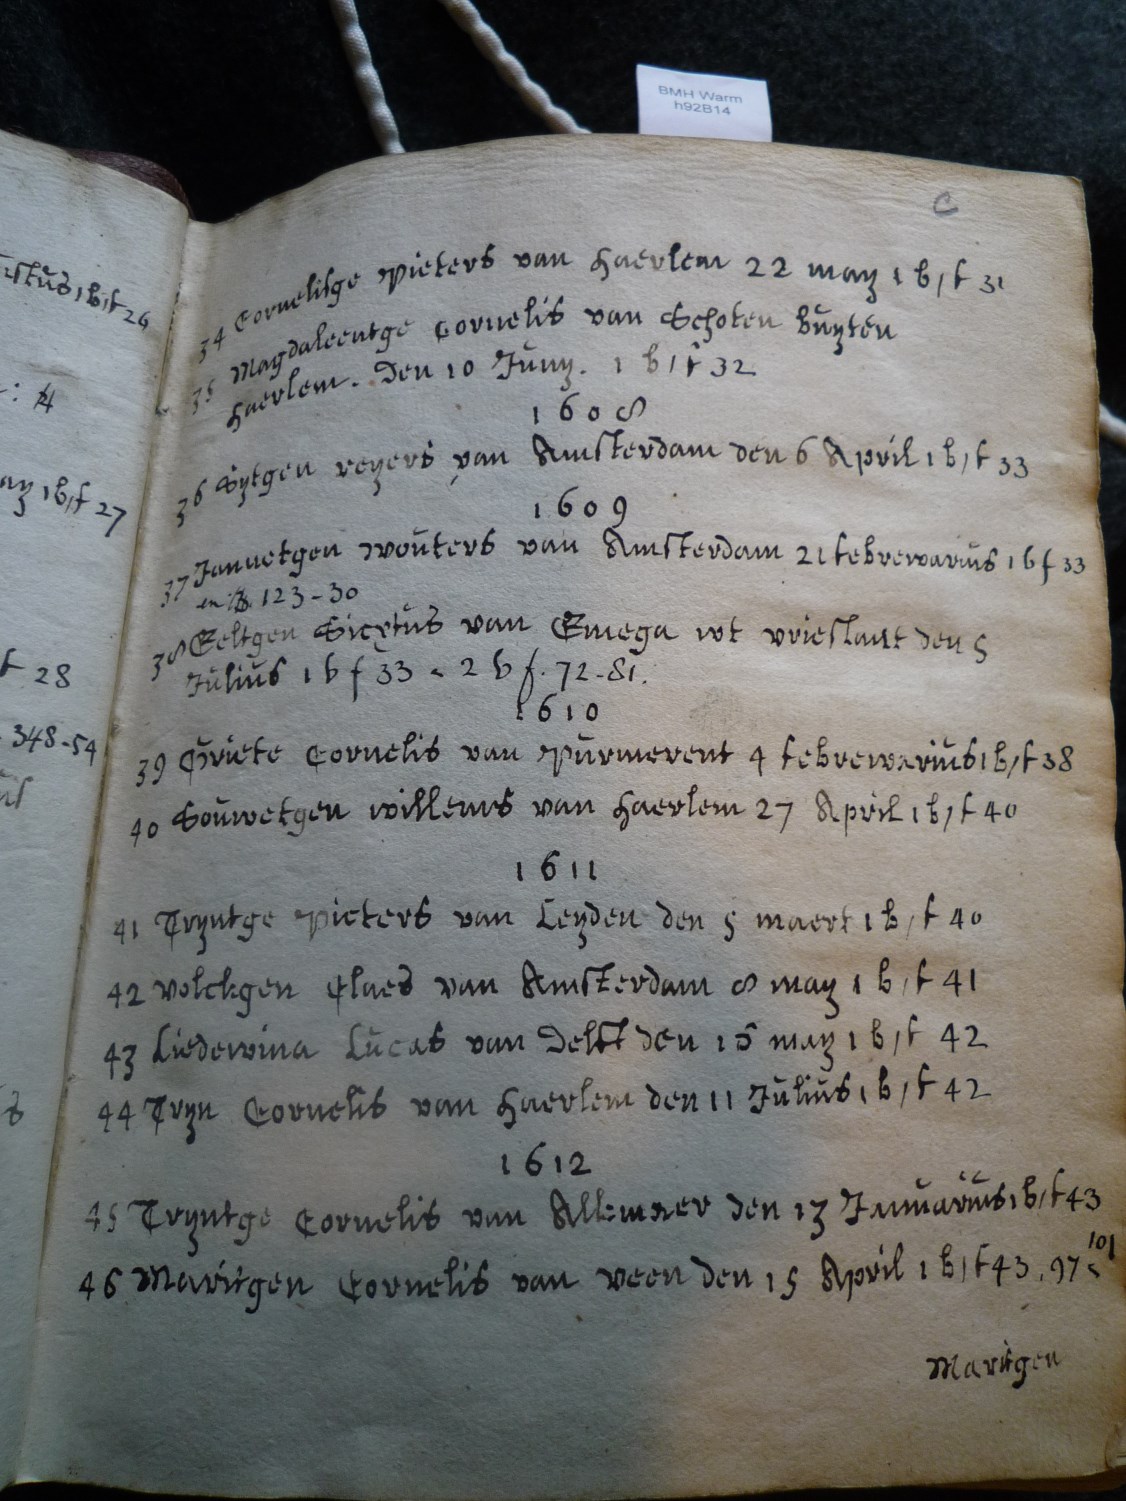 BMH Warm
h92B14
c
34 Cornelisge Pieters van haerlem 22 may 1 b, f 31
35 Magdaleentge Cornelis van Schoten buyten
haerlem. Den 10 Juny. 1 b, f 32
1608
36 Sytgen reyers van Amsterdam den 6 April 1 b, f 33
1609
37 Jannetgen wouters van Amsterdam 21 febrewarius 1 b f 33
123-30
38 Eeltgen Sicxtus van Emega wt vrieslant den 5
Julius 1 b f 33 - 2 b f. 72-81.
1610
39 Griete Cornelis van Purmerent 4 febrewarius 1 b, f 38
40 Souwetgen willems van haerlem 27 April 1 b, f 40
1611
41 Tryntge Pieters van Leyden den 5 maert 1 b, f 40
42 volckgen Claes van Amsterdam 8 may 1 b, f 41
43 Liedewina Lucas van Delft den 15 may 1 b, f 42
44 Tryn Cornelis van haerlem den 11 Julius 1 b, f 42
1612
45 Tryntge Cornelis van Alkmaer den 13 Januarius 1 b, f 43
46 Maritgen Cornelis van veen den 15 April 1 b, f 43. 97 101
Maritgen
26
: 4
ay 1 b, f 27
f 28
348-54